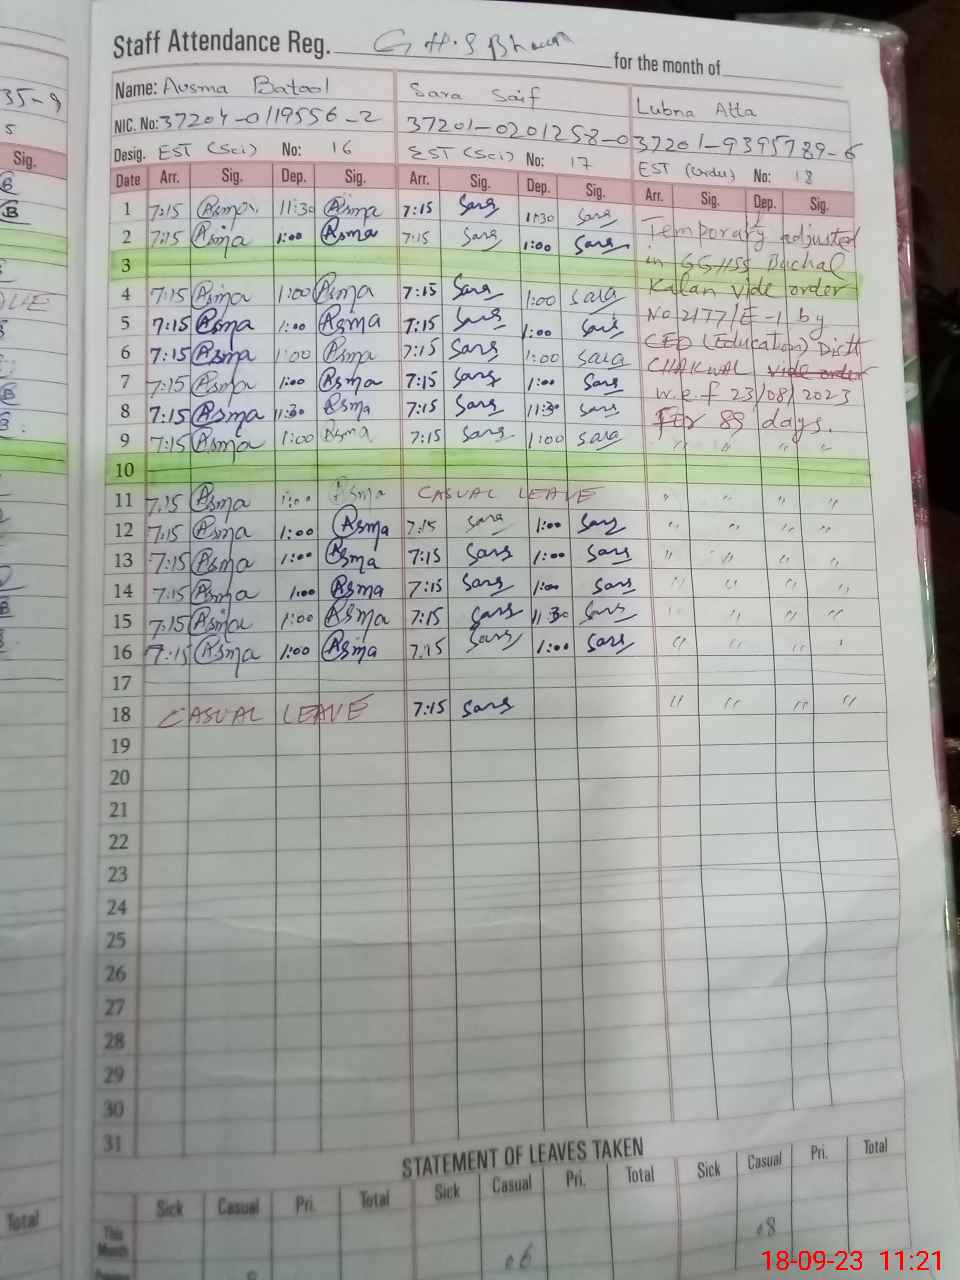 Staff Attendance Reg. G.H.S Bhaun for the month of
35-9
5
Sig.
B
B
LVE
B
B
Total
Name: Ausma Batool Sara Saif Lubna Atta
NIC. No: 37204-0119556-2 37201-0201258-0 37201-9395789-6
Desig. EST (Sci) No: 16 EST (Sci) No: 17 EST (Urdu) No: 18
Date Arr. Sig. Dep. Sig. Arr. Sig. Dep. Sig. Arr. Sig. Dep. Sig.
1 7:15 Asma 11:30 Asma 7:15 Sara 11:30 Sara Temporary adjusted
2 7:15 Asma 1:00 Asma 7:15 Sara 1:00 Sara in GGHSS Buchal
3 Kalan vide order
4 7:15 Asma 1:00 Asma 7:15 Sara 1:00 Sara
5 7:15 Asma 1:00 Asma 7:15 Sara 1:00 Sara No 2177/E-1 by
6 7:15 Asma 1:00 Asma 7:15 Sara 1:00 Sara CEO (Education) Distt
7 7:15 Asma 1:00 Asma 7:15 Sara 1:00 Sara CHAKWAL vide order
8 7:15 Asma 11:30 Asma 7:15 Sara 11:30 Sara w.e.f 23/08/2023
9 7:15 Asma 1:00 Asma 7:15 Sara 1:00 Sara For 89 days.
" " " "
10
11 7:15 Asma 1:00 Asma CASUAL LEAVE " " " "
12 7:15 Asma 1:00 Asma 7:15 Sara 1:00 Sara " " " "
13 7:15 Asma 1:00 Asma 7:15 Sara 1:00 Sara " " " "
14 7:15 Asma 1:00 Asma 7:15 Sara 1:00 Sara " " " "
15 7:15 Asma 1:00 Asma 7:15 Sara 11:30 Sara " " " "
16 7:15 Asma 1:00 Asma 7:15 Sara 1:00 Sara " " " "
17
18 CASUAL LEAVE 7:15 Sara " " " "
19
20
21
22
23
24
25
26
27
28
29
30
31
STATEMENT OF LEAVES TAKEN
Sick Casual Pri. Total Sick Casual Pri. Total Sick Casual Pri. Total
This Month 06 08
18-09-23 11:21